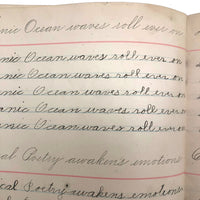 nic Ocean waves roll ever on
nic Ocean waves roll ever on
anic Ocean waves roll ever on
anic Ocean waves roll ever on
anic Ocean waves roll ever on
al Poetry awakens emotions
ical Poetry awakens emotions